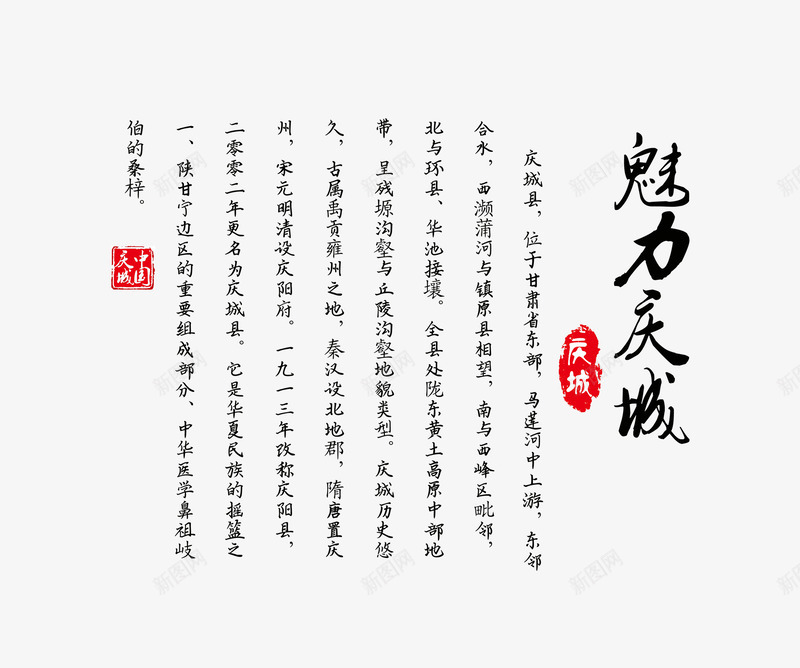 魅力庆城
庆城
庆城县，位于甘肃省东部，马莲河中上游，东邻
合水，西濒蒲河与镇原县相望，南与西峰区毗邻，
北与环县、华池接壤。全县处陇东黄土高原中部地
带，呈残塬沟壑与丘陵沟壑地貌类型。庆城历史悠
久，古属禹贡雍州之地，秦汉设北地郡，隋唐置庆
州，宋元明清设庆阳府。一九一三年改称庆阳县，
二零零二年更名为庆城县。它是华夏民族的摇篮之
一、陕甘宁边区的重要组成部分、中华医学鼻祖岐
伯的桑梓。
中国
庆城
新图网